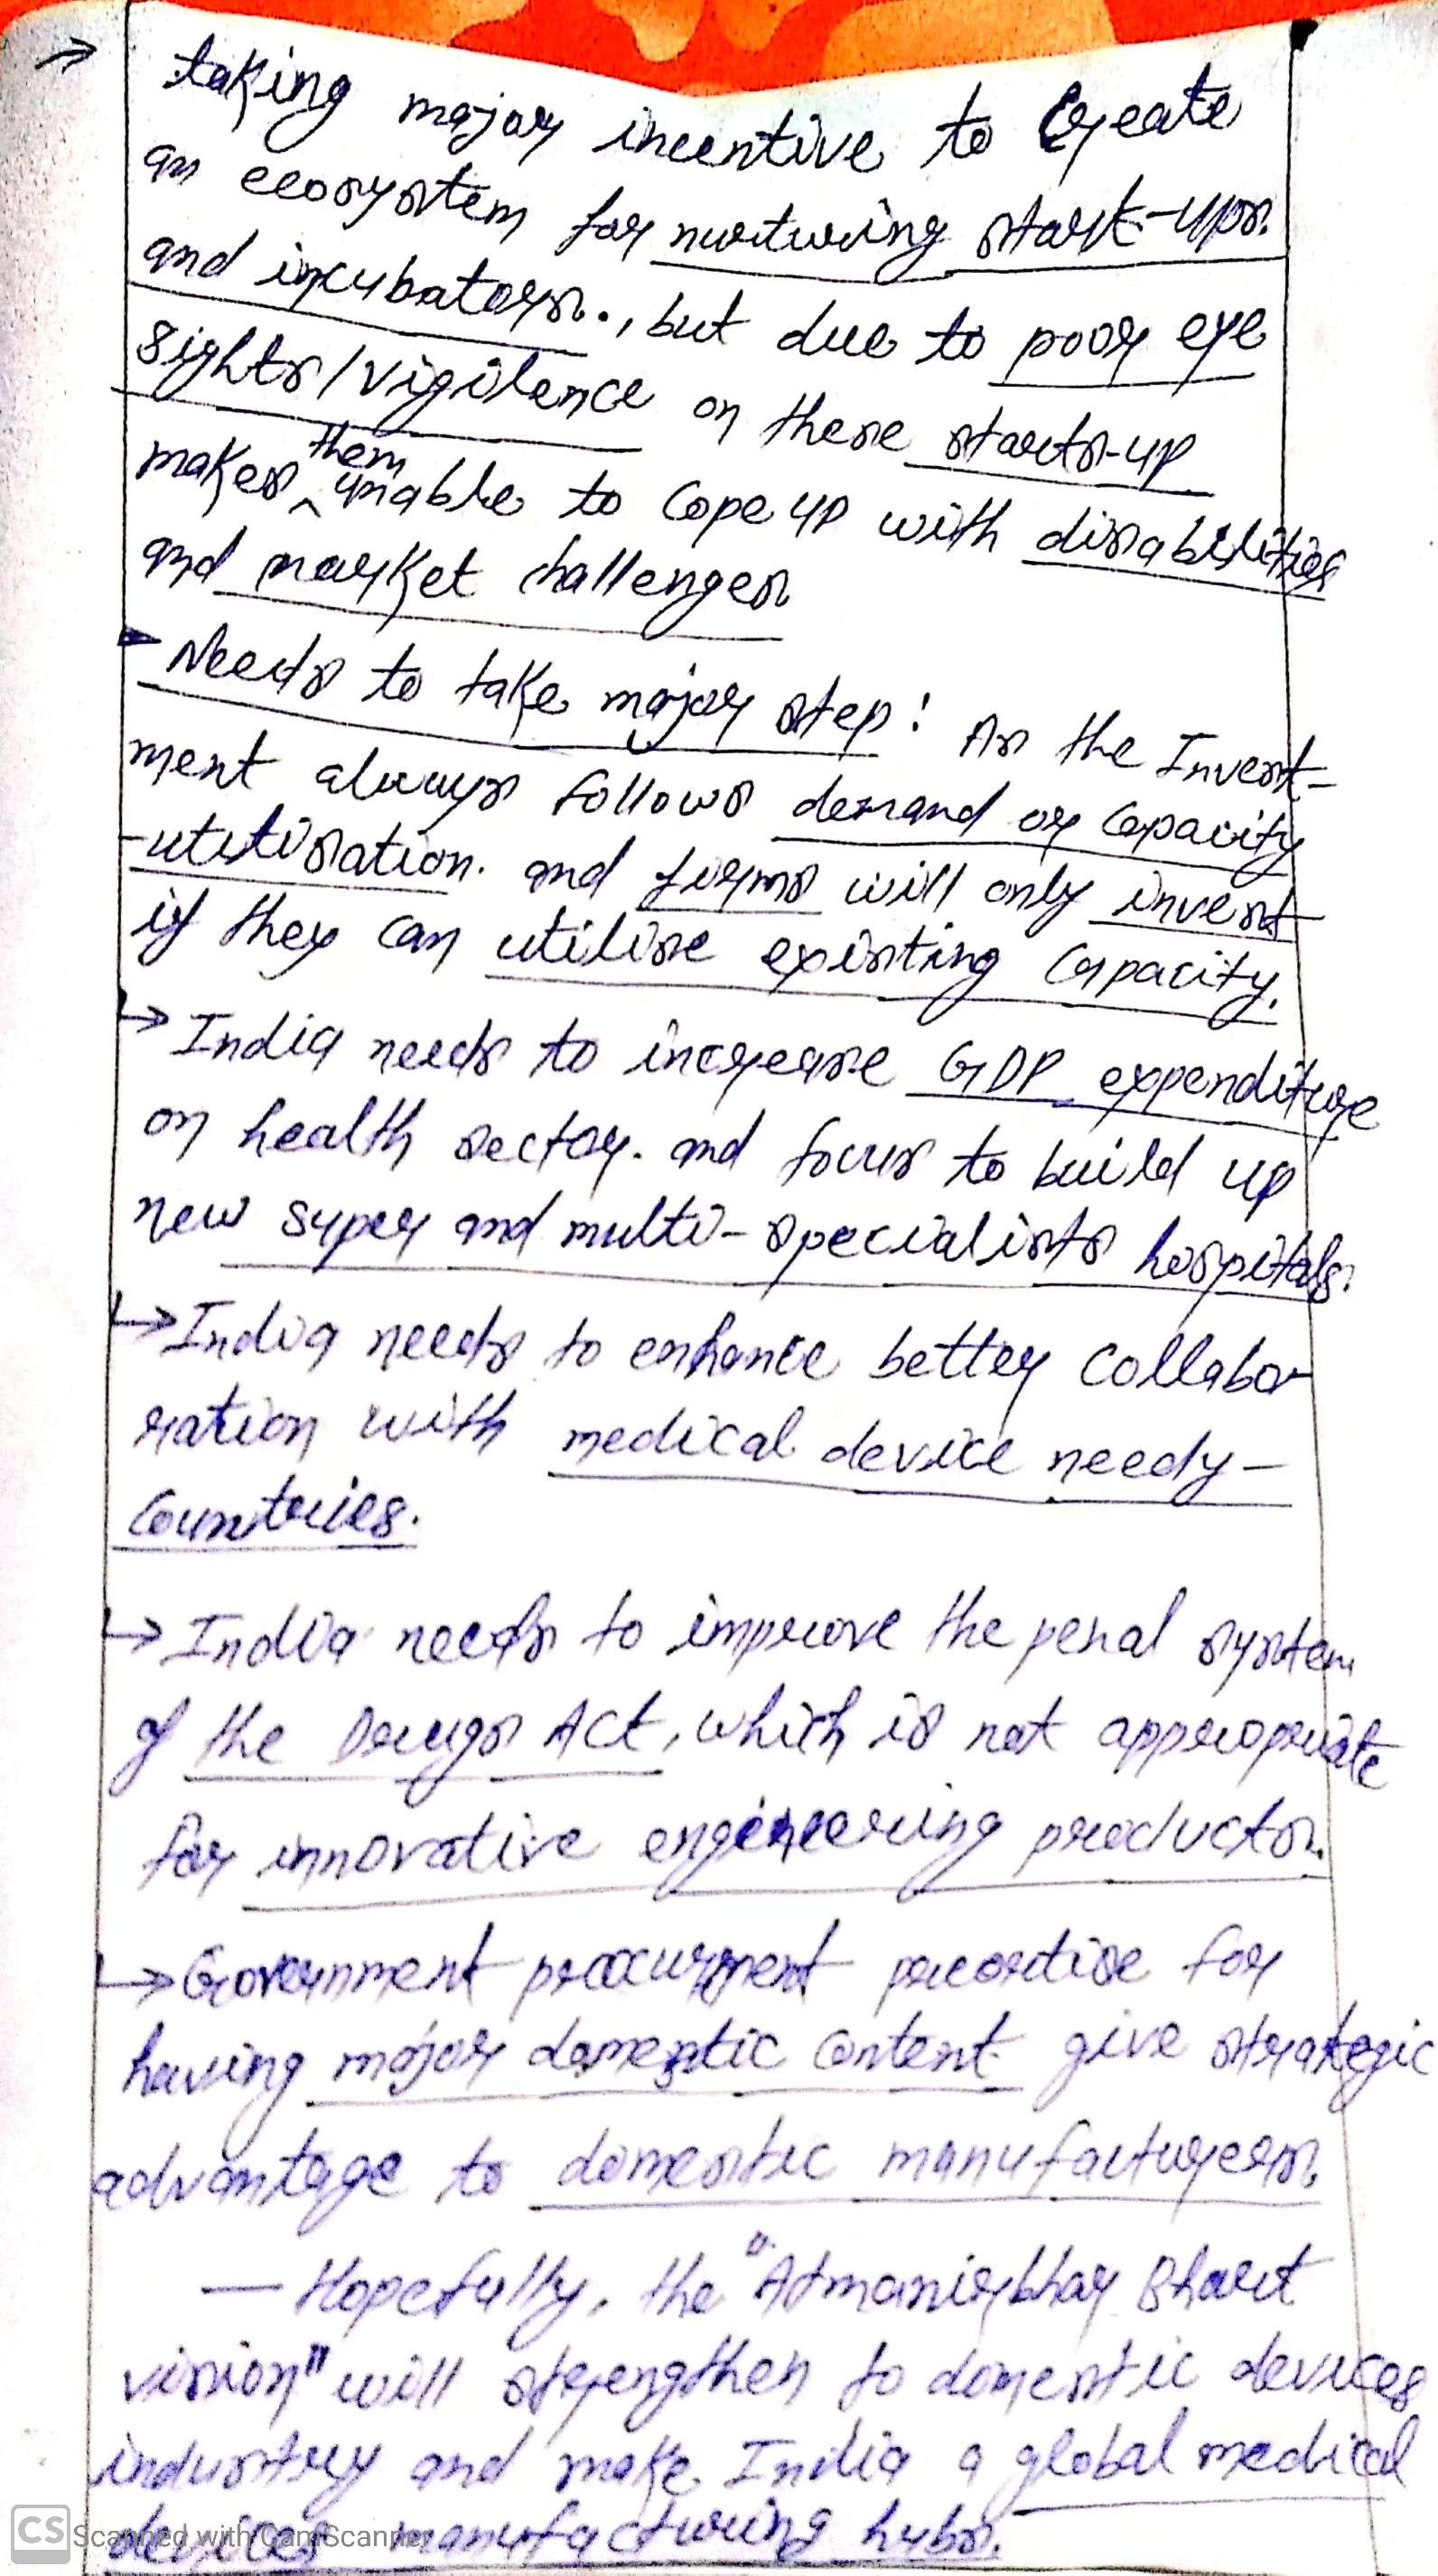 → taking major incentive to create
an ecosystem for nurturing start-ups.
and incubators., but due to poor eye
sights/vigilence on these starts-up
makes them unable to cope up with disabilities
and market challenges
Needs to take major step: As the Invest-
ment always follows demand or capacity
-utilisation. and firms will only invest
if they can utilise existing capacity.
↳ India needs to increase GDP expenditure
on health sector. and focus to build up
new super and multi-specialists hospitals.
↳ India needs to enhance better collabo-
ration with medical device needy-
countries.
↳ India needs to improve the penal system
of the Drugs Act, which is not appropriate
for innovative engineering products.
↳ Government procurment priortise for
having major domestic content give strategic
advantage to domestic manufacturers.
— Hopefully, the "Atmanirbhar Bhart
vision" will strengthen to domestic devices
industry and make India a global medical
devices manufacturing hubs.
CS Scanned with CamScanner